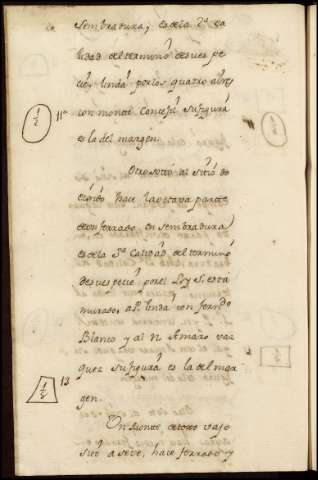 sembradura, es de la 2ª ca
lidad del termino desues pe
cies linda por los quatro aires
con monte Concejil su figura
es la del margen.
½
11ª
Otro soto al sitio do
hace la octava parte de
un ferrado en sembradura
es de la 3ª Calidad del termino
desuespecie por el L y S. está
murado a P. linda con ferndo
Blanco y al N. Amaro vaz
quez su figura es la del mar
gen.
½
13
Un Monte, de toxo vajo
sitº a seve, hace ferrado y